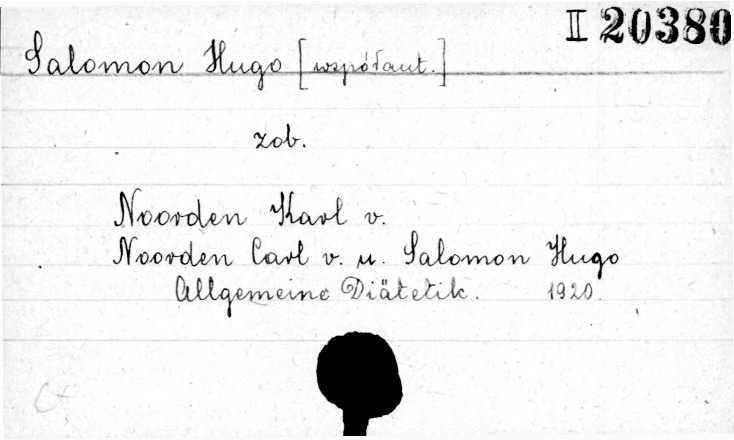 II 20380
Salomon Hugo [współaut.]
zob.
Noorden Karl v.
Noorden Carl v. u. Salomon Hugo
Allgemeine Diätetik. 1920.